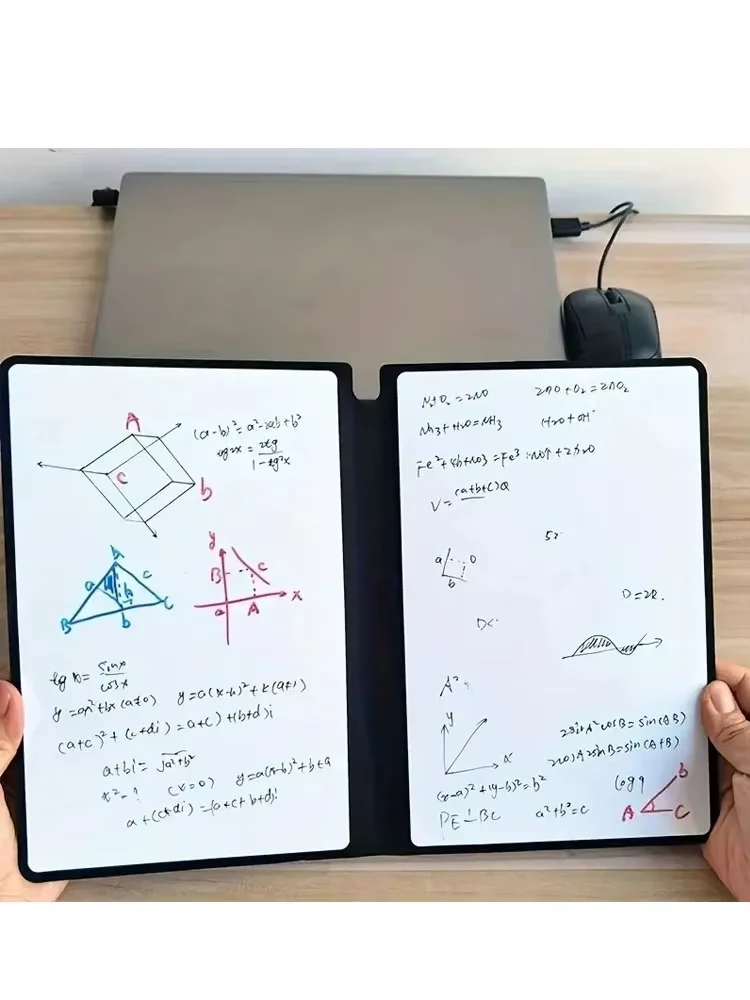 A
(a-b)² = a²-2ab+b²
tg2x = 2tg
1-tg²x
C
b
a c
B b C
y
B C
a A x
tg x = sinx
cosx
y = ax²+bx (a≠0) y=a(x-h)²+k(a≠1)
(a+c)²+(c+di)=a+c)+(b+d)i
a+bi = √a²+b²
x²=1 (x=0) y=a(x-b)²+b+a
a+(c+di)=(a+c+b+d)i
2NO+O₂=2NO₂
NH3+H2O=NH3 H2O+OH⁻
V= (a+b+c)Q
a D
b
D=2R.
D<
A²
y
x
2sinA²cosB=sin(AB)
2cosA2sinB=sin(A+B)
(x-a)²+(y-b)²=b²
log9
b
PE⊥BC a²+b²=c A C